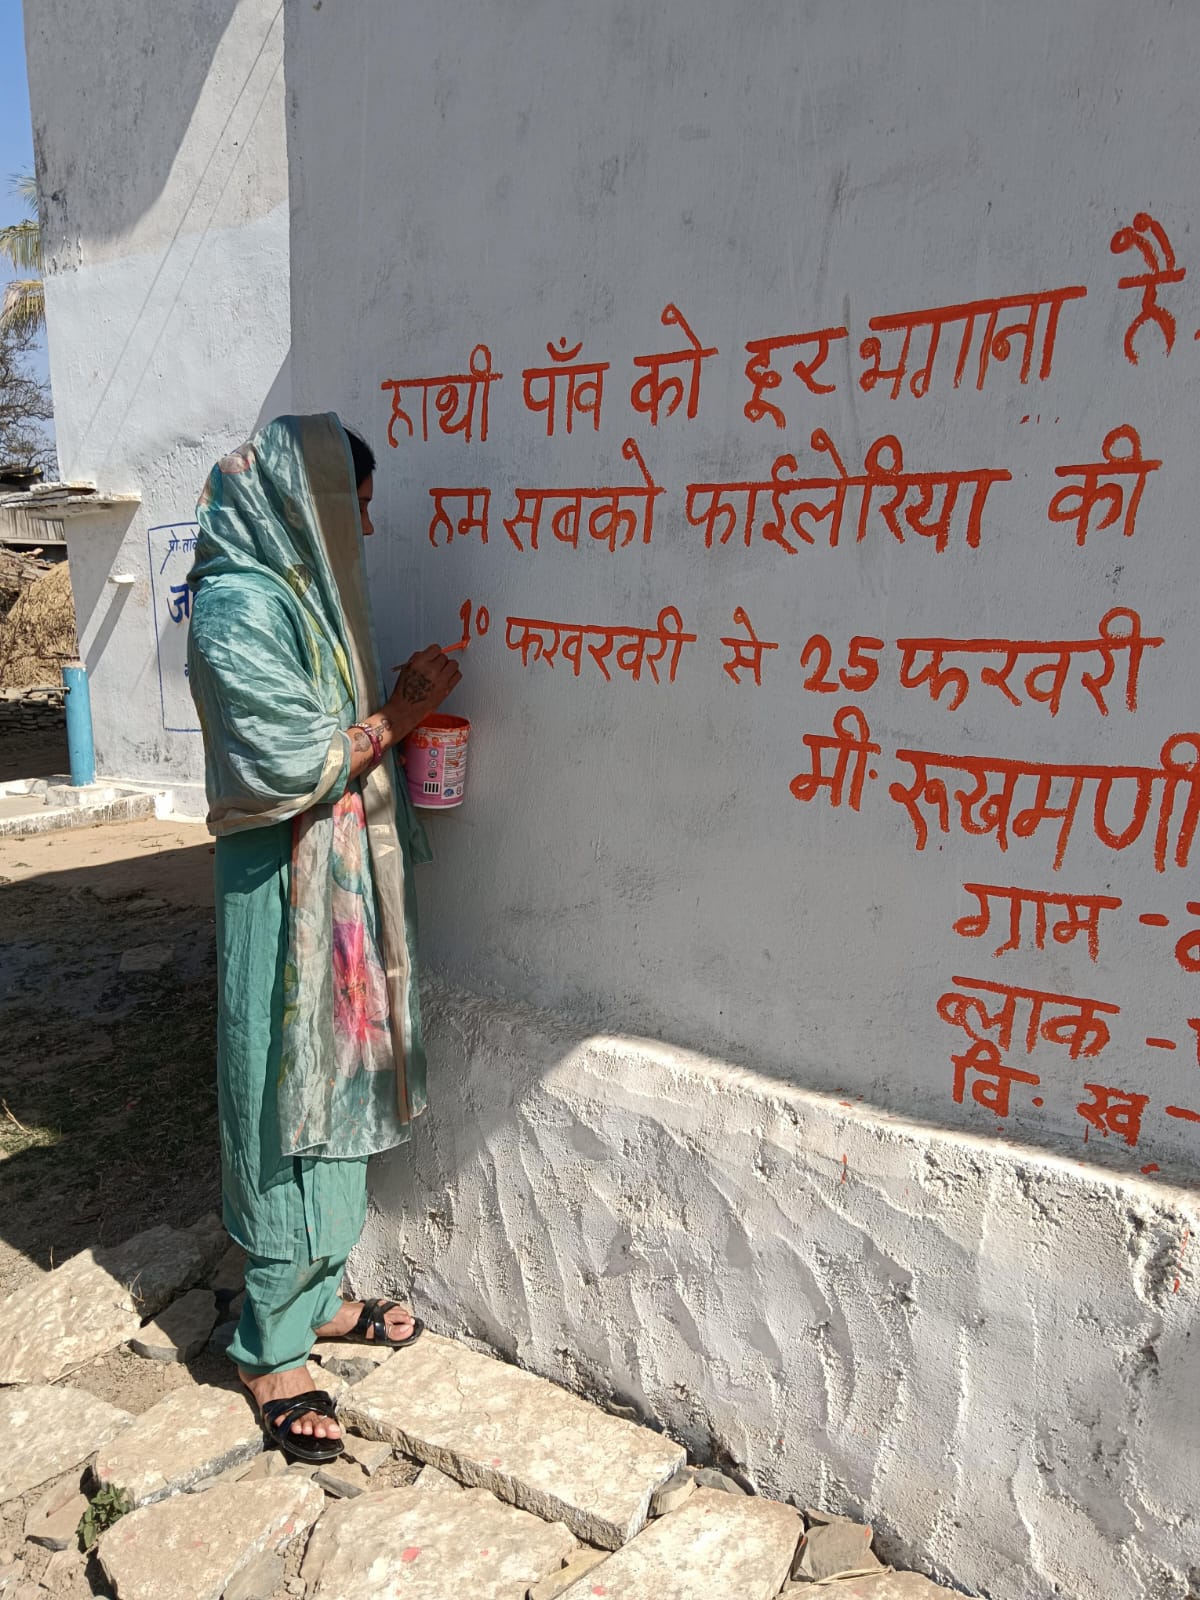 हाथी पाँव को दूर भगाना है
हम सबको फाईलेरिया की
10 फरवरी से 25 फरवरी
मी. रूखमणी
ग्राम -
ब्लाक -
वि. ख -